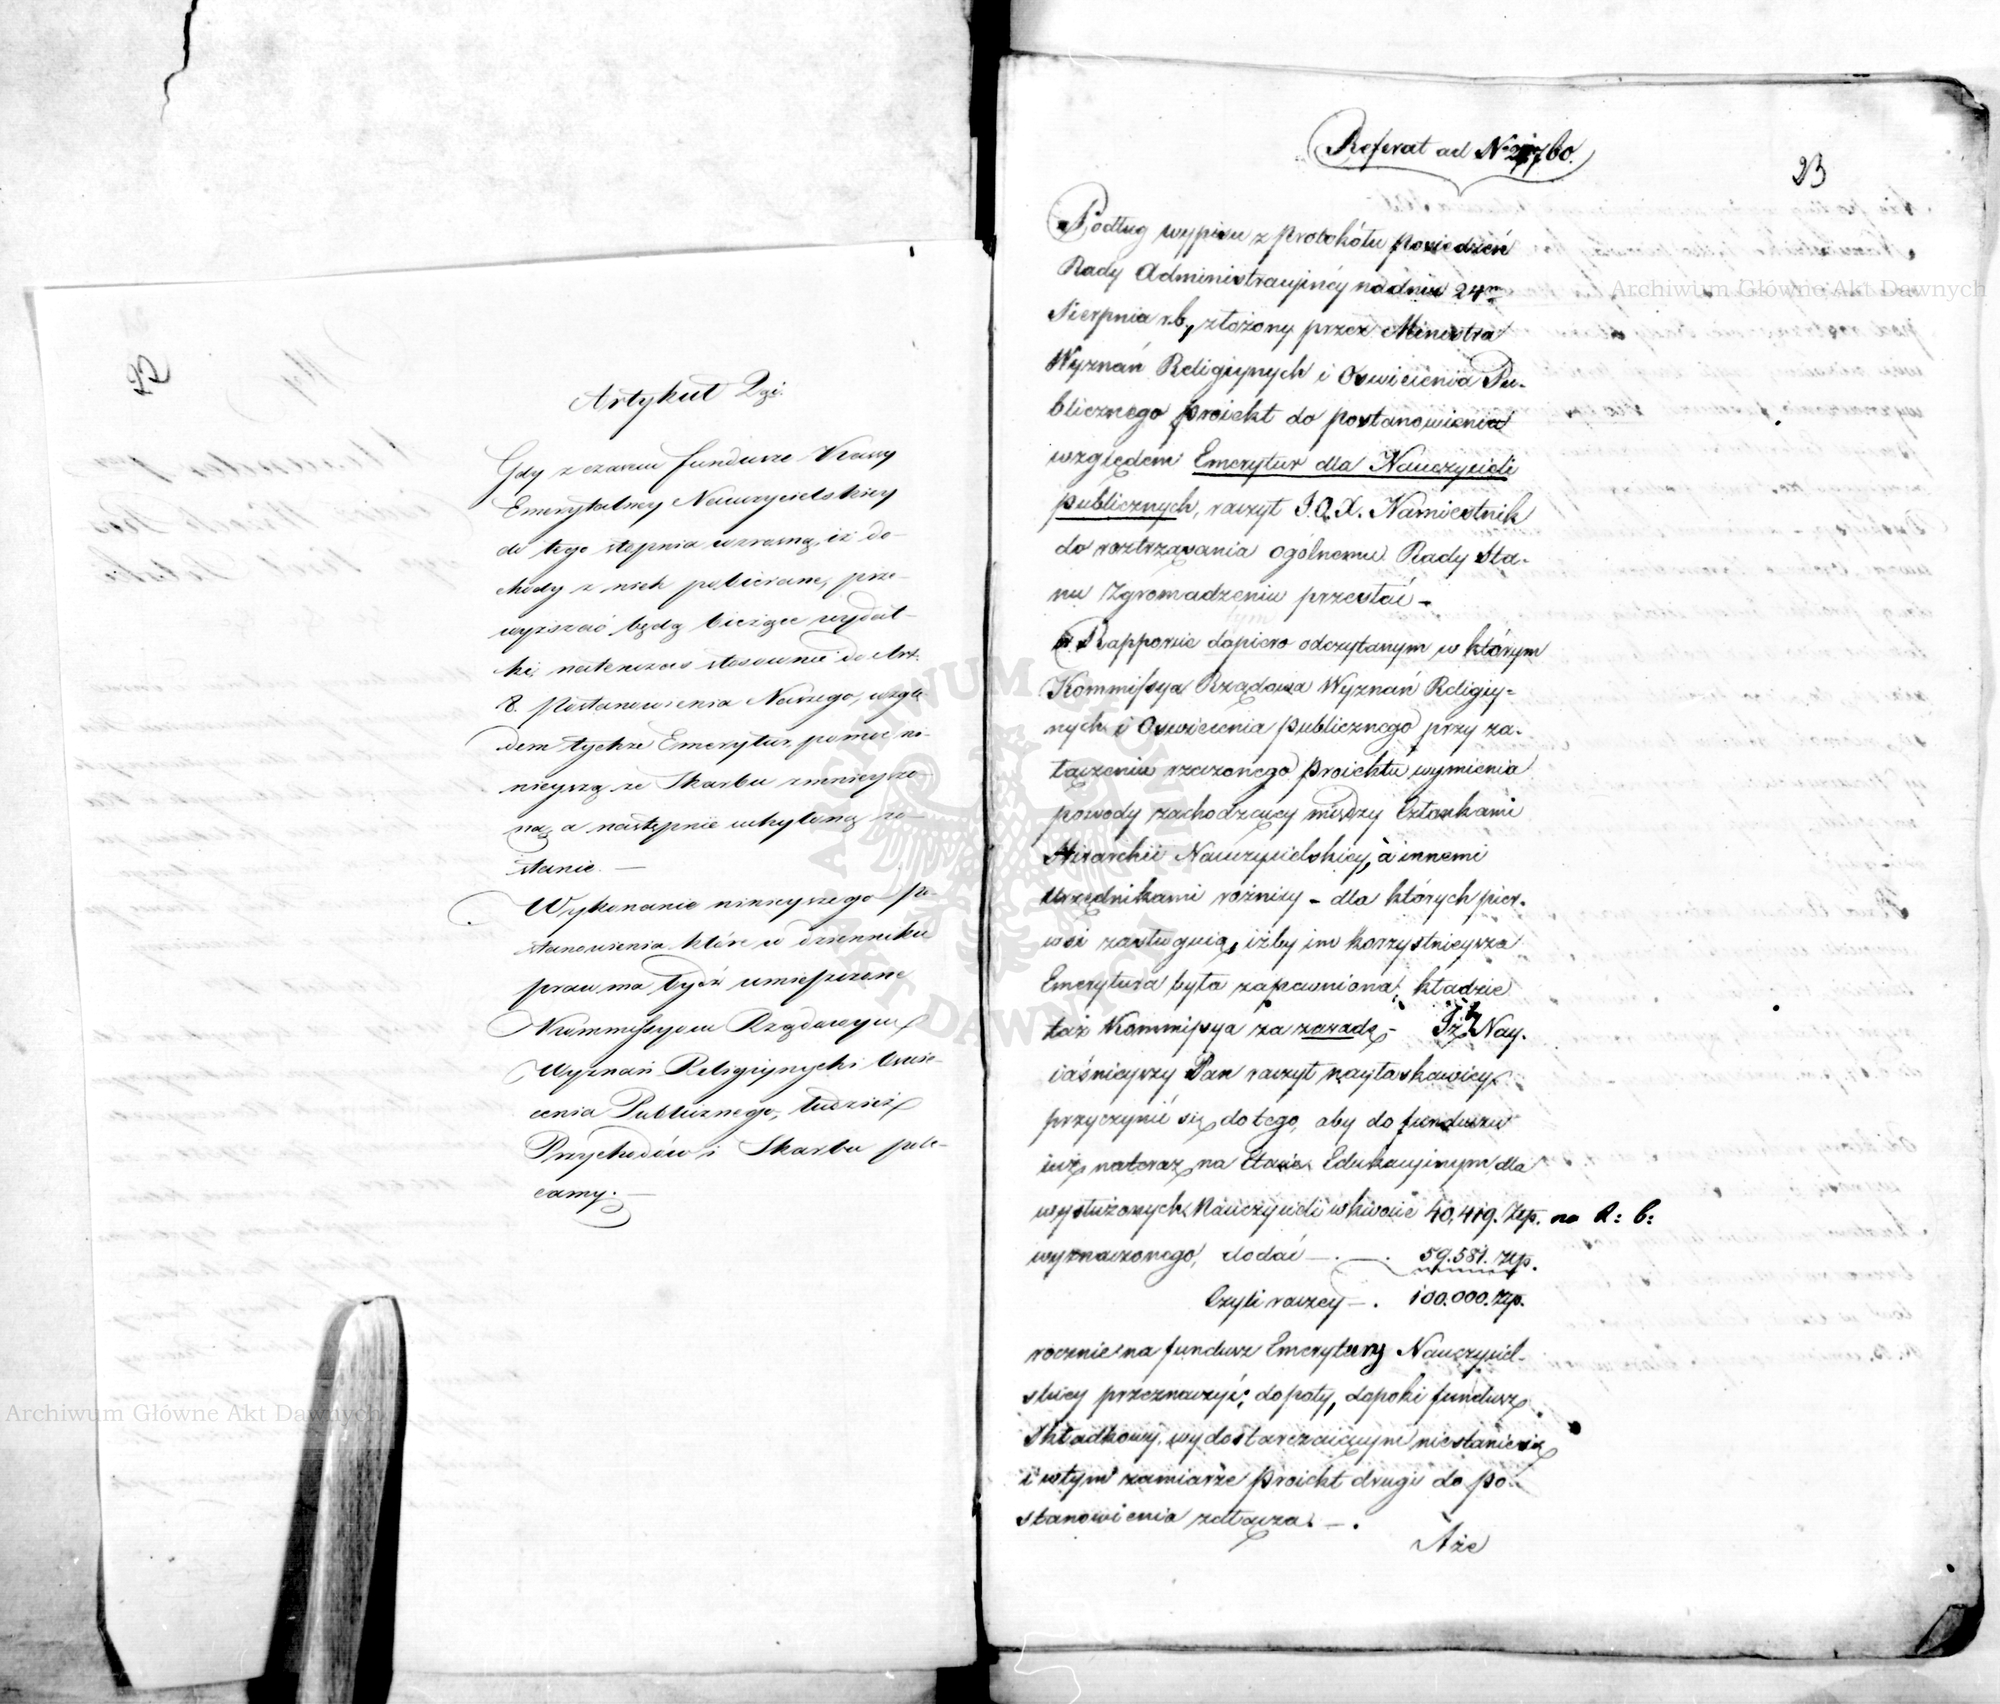 Artykuł 2gi.
Gdy z czasem fundusze Kassy
Emerytalney Nauczycielskiey
do tego stopnia wzrosną, iż do-
chody z nich pobierane, prze-
wyższać będą bieżące wydat-
ki, natenczas stosownie do Art.
8. Postanowienia Naszego, wzglę-
dem tychże Emerytur, pomoc ni-
nieyszą ze Skarbu zmnieyszo-
ną, a następnie uchyloną zo-
stanie. —
Wykonanie ninieyszego po-
stanowienia które w dzienniku
praw ma bydź umieszczone
Kommissyom Rządowym
Wyznań Religiynych i Oświe-
cenia Publicznego, tudzież
Przychodów i Skarbu pole-
camy. —
Referat ad No
23
Podług wypisu z protokółu posiedzeń
Rady Administracyjnéy na dniu 24m
Sierpnia r.b. złożony przez Ministra
Wyznań Religiynych i Oświecenia Pu-
blicznego proiekt do postanowienia
względem Emerytur dla Nauczycieli
publicznych, raczył J.O.X. Namiestnik
do roztrząsania ogólnemu Rady Sta-
nu Zgromadzeniu przesłać —
W Rapporcie dopiero odczytanym w którym
Kommissya Rządowa Wyznań Religiy-
nych i Oświecenia publicznego przy za-
łączeniu rzeczonego proiektu wymienia
powody zachodzącey między Członkami
Hirarchii Nauczycielskiey, à innemi
urzędnikami rożnicy – dla których pier-
wsi zasługuią, iżby im korzystnieysza
Emerytura była zapewniona, kładzie
taż Kommissya za zasadę – Iżby Nay-
iaśnieyszy Pan raczył nayłaskawiey
przyczynić się do tego, aby do funduszu
iuż na teraz na Etacie Edukacyinym dla
wysłużonych Nauczycieli w kwocie 40,419. Złp. na R: b:
wyznaczonego, dodać —.—. 59.581. Złp.
Czyli raczey —. 100.000. Złp.
rocznie na fundusz Emerytury Nauczyciel-
skiey przeznaczyć; dopóty, dopóki fundusz
składkowy, wydostarczaiącym niestanie się
i wtym zamiarze proiekt drugi do po-
stanowienia załącza. —.
Aże
Archiwum Główne Akt Dawnych
Archiwum Główne Akt Dawnych
ARCHIWUM GŁÓWNE AKT DAWNYCH